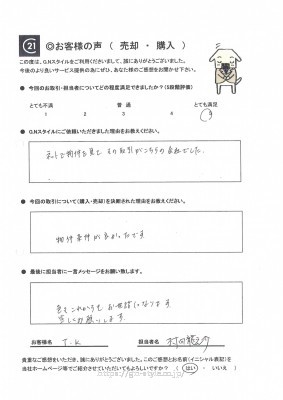 21 ◎お客様の声 ( 売却 ・ 購入 )
この度は、G.Nスタイルをご利用くださいまして、誠にありがとうございました。
今後のより良いサービス提供の為にぜひ、あなた様のご感想をお聞かせ下さい。
● 今回のお取引・担当者についてどの程度満足できましたか?(5段階評価)
とても不満 普 通 とても満足
1 2 3 4 5
● G.Nスタイルにご依頼いただきました理由をお教えください。
ネットで物件を見て その取引がこちらの会社でした。
● 今回の取引について(購入・売却)を決断された理由をお教えください。
物件条件が良かったです
● 最後に担当者に一言メッセージをお願い致します。
これからもお世話になります
宜しくお願いします。
お客様名 T.K 担当者名
貴重なご感想をいただき、誠にありがとうございました。このご感想とお名前(イニシャル表記)を
当社ホームページ等でご紹介させていただいてもよろしいですか? ( はい ・ いいえ )